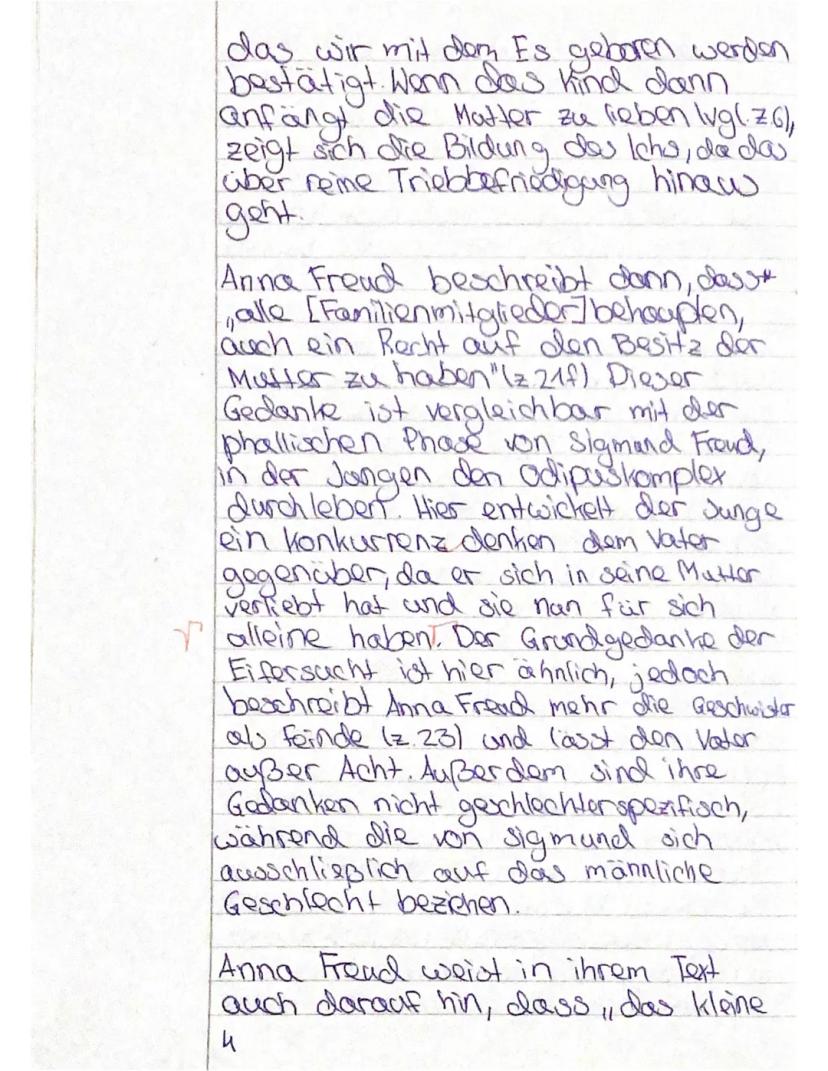 das wir mit dem Es geboren werden
bestätigt. Wenn das Kind dann
anfängt die Mutter zu lieben (vgl. Z.6),
zeigt sich die Bildung des Ichs, da das
über reine Triebbefriedigung hinaus
geht.
Anna Freud beschreibt dann, dass*
„alle [Familienmitglieder] behaupten,
auch ein Recht auf den Besitz der
Mutter zu haben" (z.21f). Dieser
Gedanke ist vergleichbar mit der
phallischen Phase von Sigmund Freud,
in der Jungen den Ödipuskomplex
durchleben. Hier entwickelt der Junge
ein Konkurrenz denken dem Vater
gegenüber, da er sich in seine Mutter
verliebt hat und sie nun für sich
√ alleine haben Γ. Der Grundgedanke der
Eifersucht ist hier ähnlich, jedoch
beschreibt Anna Freud mehr die Geschwister
als Feinde (z.23) und lässt den Vater
außer Acht. Außerdem sind ihre
Gedanken nicht geschlechterspezifisch,
während die von Sigmund sich
ausschließlich auf das männliche
Geschlecht beziehen.
Anna Freud weist in ihrem Text
auch darauf hin, dass „das kleine
4